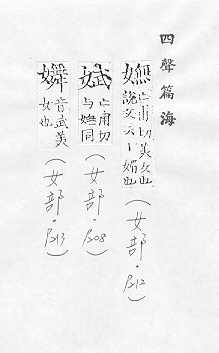 四聲篇海
嫵
亡甫切美女也
說文云丨媚也
(女部·P212)
娬
亡甫切
与嫵同
(女部·P208)
音武美
女也
(女部·P213)